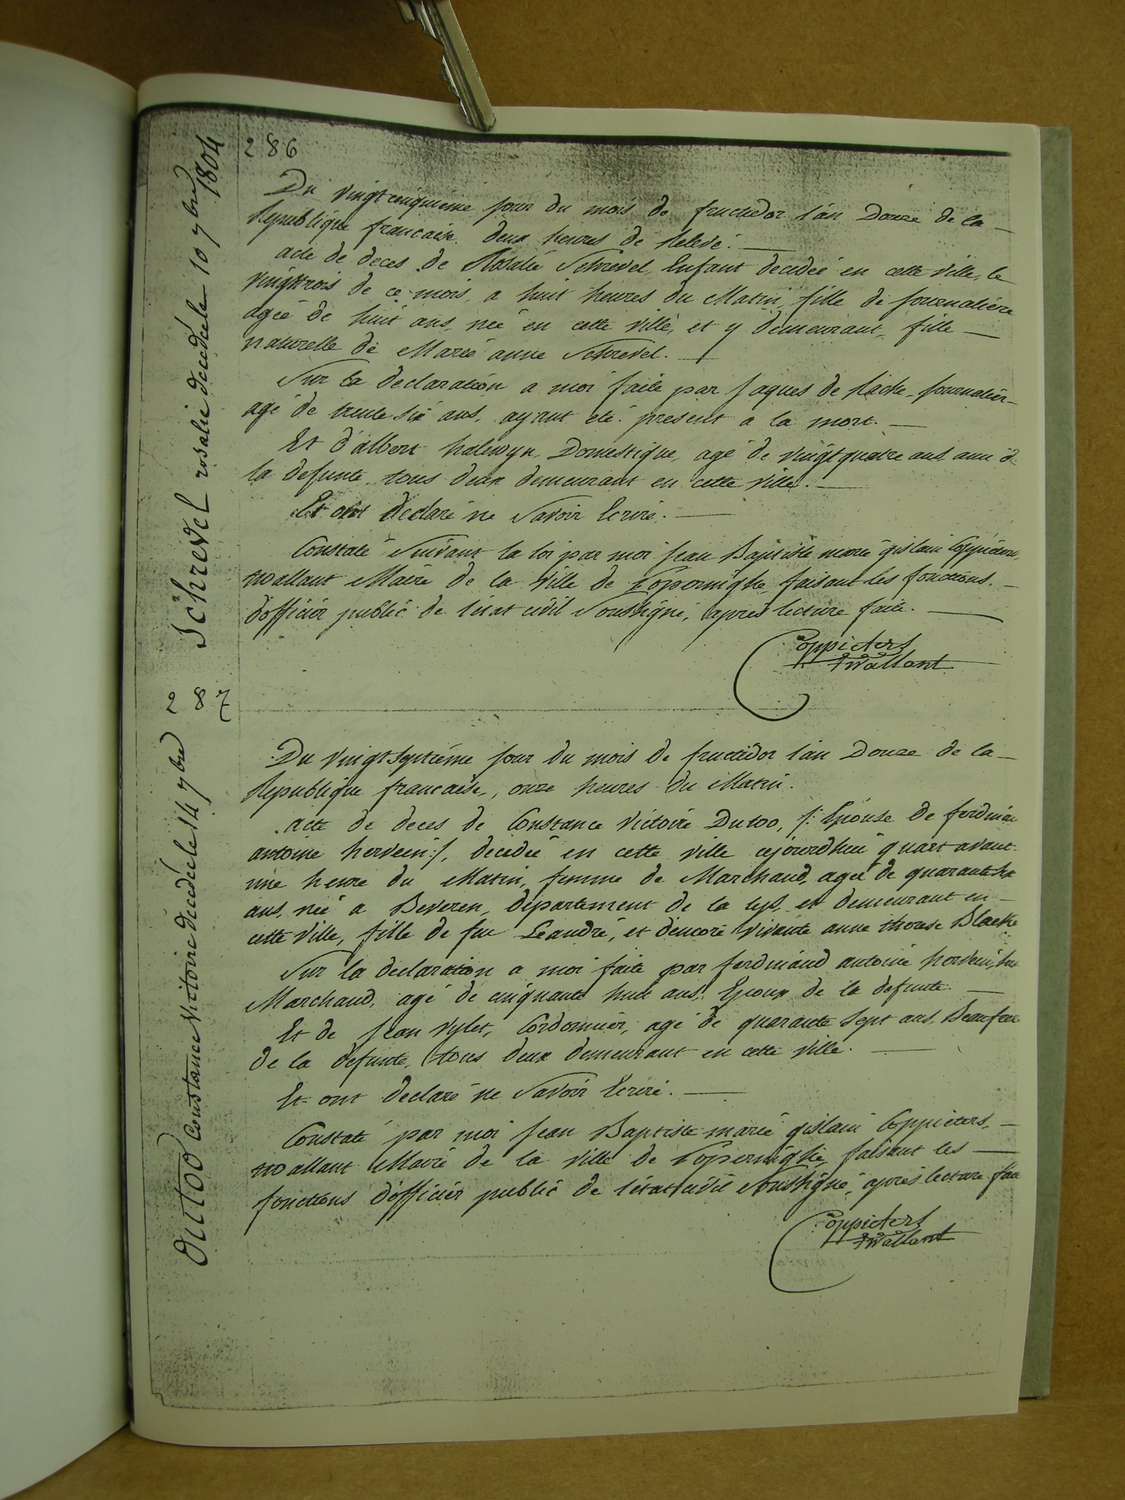 286
Du vingtcinquieme jour du mois de fructidor l'an Douze de la
Republique francaise, deux heures de Relevé.
acte de deces de Rosalie Schrevel, Enfant decedeé en cette ville, le
vingtrois de ce mois, a huit heures du Matin, fille de Journaliere
ageé de huit ans, neé en cette ville, et y demeurant, fille
naturelle de Marie anne Schrevel.
Sur la declaration a moi faite par Jaques de Racke, Journalier
agé de trente Six ans, ayant eté present a la mort.
Et d'albert halewyn, Domestique, agé de vingt quatre ans ami d
la defunte, tous deux demeurant en cette ville.
Et ont declaré ne Savoir Ecrire.
Constaté Suivant la loi par moi Jean Baptiste marie gislain Coppieters
wallant Maire de la Ville de Poperinghe, faisant les fonctions
d'officier public de l'etat civil Soussigné, apres lecture faite.
Coppieters
twallant
Schrevel rosalie decedeé le 10 7bre 1804
287
Du vingtseptieme jour du mois de fructidor l'an Douze de la
Republique francaise, onze heures du Matin.
acte de deces de Constance Victoire Dutoo, /: Epouse de ferdinan
antoine herwein :/, decedeé en cette ville cejourdhui quart avant
une heure du Matin, femme de Marchand, ageé de quarante
ans, neé a Beveren, departement de la Lys, et demeurant en
cette Ville, fille de feu Leandre, et d'encore Vivante anne therese Blaeke
Sur la declaration a moi faite par ferdinand antoine herwein,
Marchand, agé de cinquante huit ans, Epoux de la defunte.
Et de Jean Vylet, Cordonnier, agé de quarante Sept ans, Beaufrere
de la defunte, tous deux demeurant en cette ville.
Et ont declaré ne Savoir Ecrire.
Constaté par moi Jean Baptiste marie gislain Coppieters,
wallant Maire de la Ville de Poperinghe, faisant les
fonctions d'officier public de l'etat civil Soussigné, apres lecture faite
Coppieters
twallant
Dutoo Constance Victoire decedeé le 14 7bre